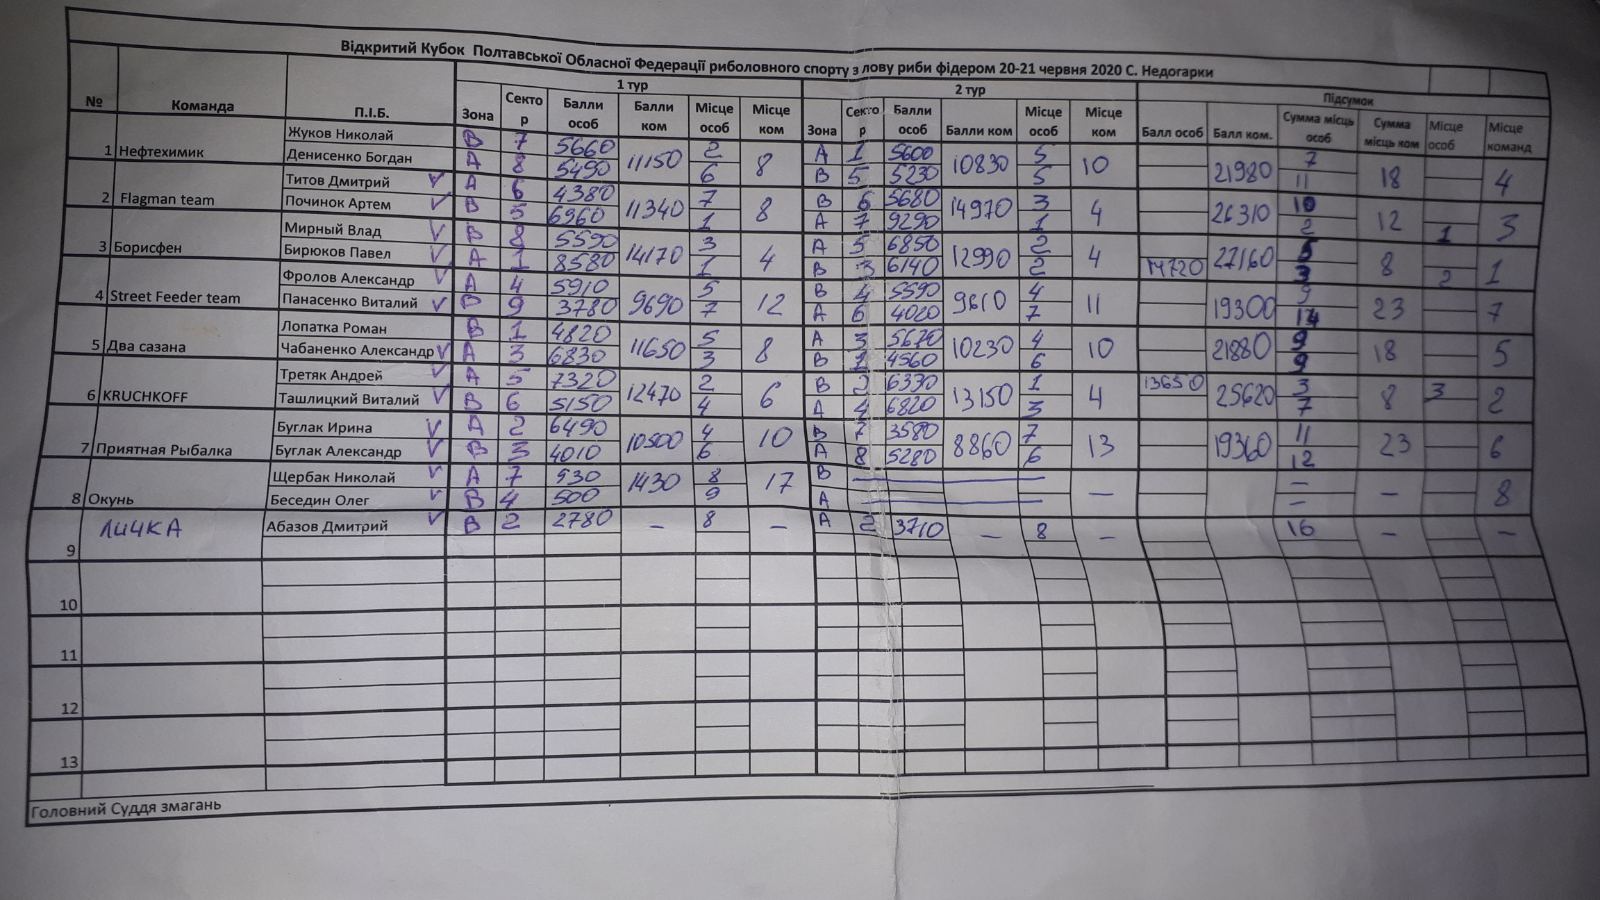 Відкритий Кубок Полтавської Обласної Федерації риболовного спорту з лову риби фідером 20-21 червня 2020 С. Недогарки
1 тур 2 тур Підсумок
№ Команда П.І.Б. Зона Сектор Балли особ Балли ком Місце особ Місце ком Зона Сектор Балли особ Балли ком Місце особ Місце ком Балл особ Балл ком. Сумма місць особ Сумма місць ком Місце особ Місце команд
1 Нефтехимик Жуков Николай В 7 5660 11150 2 8 А 1 5600 10830 5 10 21980 7 18 4
Денисенко Богдан А 8 5490 6 В 5 5230 5 11
2 Flagman team Титов Дмитрий V А 6 4380 11340 7 8 В 6 5680 14970 3 4 26310 10 12 3
Починок Артем V В 5 6960 1 А 7 9290 1 2 1
3 Борисфен Мирный Влад V В 8 5590 14170 3 4 А 5 6850 12990 2 4 27160 5 8 1
Бирюков Павел V А 1 8580 1 В 3 6140 2 14720 3 2
4 Street Feeder team Фролов Александр V А 4 5910 9690 5 12 В 4 5590 9610 4 11 19300 9 23 7
Панасенко Виталий V В 9 3780 7 А 6 4020 7 14
5 Два сазана Лопатка Роман В 1 4820 11650 5 8 А 3 5670 10230 4 10 21880 9 18 5
Чабаненко Александр V А 3 6830 3 В 1 4560 6 9
6 KRUCHKOFF Третяк Андрей V А 5 7320 12470 2 6 В 2 6330 13150 1 4 13650 25620 3 8 3 2
Ташлицкий Виталий V В 6 5150 4 А 4 6820 3 7
7 Приятная Рыбалка Буглак Ирина V А 2 6490 10500 4 10 В 7 3580 8860 7 13 19360 11 23 6
Буглак Александр V В 3 4010 6 А 8 5280 6 12
8 Окунь Щербак Николай V А 7 930 1430 8 17 В — — — — 8
Беседин Олег V В 4 500 9 А — —
9 ЛИЧКА Абазов Дмитрий V В 2 2780 — 8 — А 2 3710 — 8 — 16 — —
10
11
12
13
Головний Суддя змагань